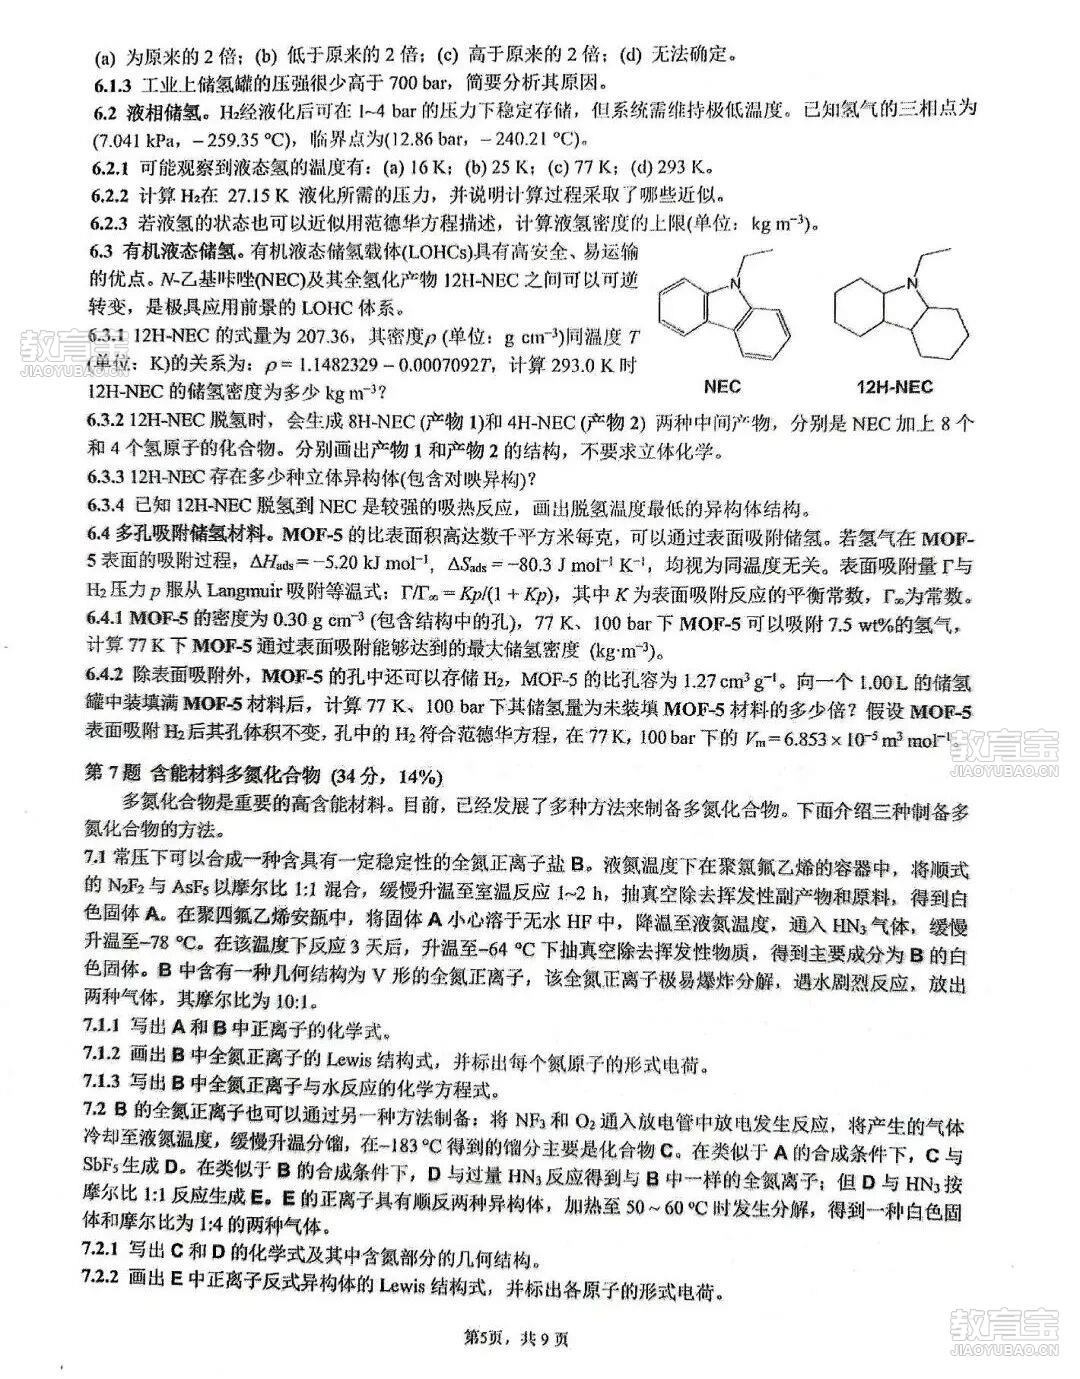 (a) 为原来的 2 倍；(b) 低于原来的 2 倍；(c) 高于原来的 2 倍；(d) 无法确定。
6.1.3 工业上储氢罐的压强很少高于 700 bar，简要分析其原因。
6.2 液相储氢。H₂经液化后可在 1~4 bar 的压力下稳定存储，但系统需维持极低温度。已知氢气的三相点为
(7.041 kPa，－259.35 ℃)，临界点为(12.86 bar，－240.21 ℃)。
6.2.1 可能观察到液态氢的温度有：(a) 16 K；(b) 25 K；(c) 77 K；(d) 293 K。
6.2.2 计算 H₂在 27.15 K 液化所需的压力，并说明计算过程采取了哪些近似。
6.2.3 若液氢的状态也可以近似用范德华方程描述，计算液氢密度的上限(单位：kg m⁻³)。
6.3 有机液态储氢。有机液态储氢载体(LOHCs)具有高安全、易运输
的优点。N-乙基咔唑(NEC)及其全氢化产物 12H-NEC 之间可以可逆
转变，是极具应用前景的 LOHC 体系。
6.3.1 12H-NEC 的式量为 207.36，其密度ρ (单位：g cm⁻³)同温度 T
(单位：K)的关系为：ρ = 1.1482329 − 0.0007092T，计算 293.0 K 时
12H-NEC 的储氢密度为多少 kg m⁻³？
N
N
NEC
12H-NEC
6.3.2 12H-NEC 脱氢时，会生成 8H-NEC (产物 1)和 4H-NEC (产物 2) 两种中间产物，分别是 NEC 加上 8 个
和 4 个氢原子的化合物。分别画出产物 1 和产物 2 的结构，不要求立体化学。
6.3.3 12H-NEC 存在多少种立体异构体(包含对映异构)？
6.3.4 已知 12H-NEC 脱氢到 NEC 是较强的吸热反应，画出脱氢温度最低的异构体结构。
6.4 多孔吸附储氢材料。MOF-5 的比表面积高达数千平方米每克，可以通过表面吸附储氢。若氢气在 MOF-
5 表面的吸附过程，ΔHads = −5.20 kJ mol⁻¹，ΔSads = −80.3 J mol⁻¹ K⁻¹，均视为同温度无关。表面吸附量 Γ 与
H₂ 压力 p 服从 Langmuir 吸附等温式：Γ/Γ∞ = Kp/(1 + Kp)，其中 K 为表面吸附反应的平衡常数，Γ∞为常数。
6.4.1 MOF-5 的密度为 0.30 g cm⁻³ (包含结构中的孔)，77 K、100 bar 下 MOF-5 可以吸附 7.5 wt%的氢气，
计算 77 K 下 MOF-5 通过表面吸附能够达到的最大储氢密度 (kg·m⁻³)。
6.4.2 除表面吸附外，MOF-5 的孔中还可以存储 H₂，MOF-5 的比孔容为 1.27 cm³ g⁻¹。向一个 1.00 L 的储氢
罐中装填满 MOF-5 材料后，计算 77 K、100 bar 下其储氢量为未装填 MOF-5 材料的多少倍？假设 MOF-5
表面吸附 H₂ 后其孔体积不变，孔中的 H₂ 符合范德华方程，在 77 K，100 bar 下的 Vm = 6.853 × 10⁻⁵ m³ mol⁻¹。
第 7 题 含能材料多氮化合物 (34 分，14%)
多氮化合物是重要的高含能材料。目前，已经发展了多种方法来制备多氮化合物。下面介绍三种制备多
氮化合物的方法。
7.1 常压下可以合成一种含具有一定稳定性的全氮正离子盐 B。液氮温度下在聚氯氟乙烯的容器中，将顺式
的 N₂F₂ 与 AsF₅ 以摩尔比 1:1 混合，缓慢升温至室温反应 1~2 h，抽真空除去挥发性副产物和原料，得到白
色固体 A。在聚四氟乙烯安瓿中，将固体 A 小心溶于无水 HF 中，降温至液氮温度，通入 HN₃ 气体，缓慢
升温至−78 ℃。在该温度下反应 3 天后，升温至−64 ℃ 下抽真空除去挥发性物质，得到主要成分为 B 的白
色固体。B 中含有一种几何结构为 V 形的全氮正离子，该全氮正离子极易爆炸分解，遇水剧烈反应，放出
两种气体，其摩尔比为 10:1。
7.1.1 写出 A 和 B 中正离子的化学式。
7.1.2 画出 B 中全氮正离子的 Lewis 结构式，并标出每个氮原子的形式电荷。
7.1.3 写出 B 中全氮正离子与水反应的化学方程式。
7.2 B 的全氮正离子也可以通过另一种方法制备：将 NF₃ 和 O₂ 通入放电管中放电发生反应，将产生的气体
冷却至液氮温度，缓慢升温分馏，在−183 ℃ 得到的馏分主要是化合物 C。在类似于 A 的合成条件下，C 与
SbF₅ 生成 D。在类似于 B 的合成条件下，D 与过量 HN₃ 反应得到与 B 中一样的全氮离子；但 D 与 HN₃ 按
摩尔比 1:1 反应生成 E。E 的正离子具有顺反两种异构体，加热至 50 ~ 60 ℃ 时发生分解，得到一种白色固
体和摩尔比为 1:4 的两种气体。
7.2.1 写出 C 和 D 的化学式及其中含氮部分的几何结构。
7.2.2 画出 E 中正离子反式异构体的 Lewis 结构式，并标出各原子的形式电荷。
第5页，共 9 页
教育宝
JIAOYUBAO.CN
教育宝
JIAOYUBAO.CN
教育宝
JIAOYUBAO.CN